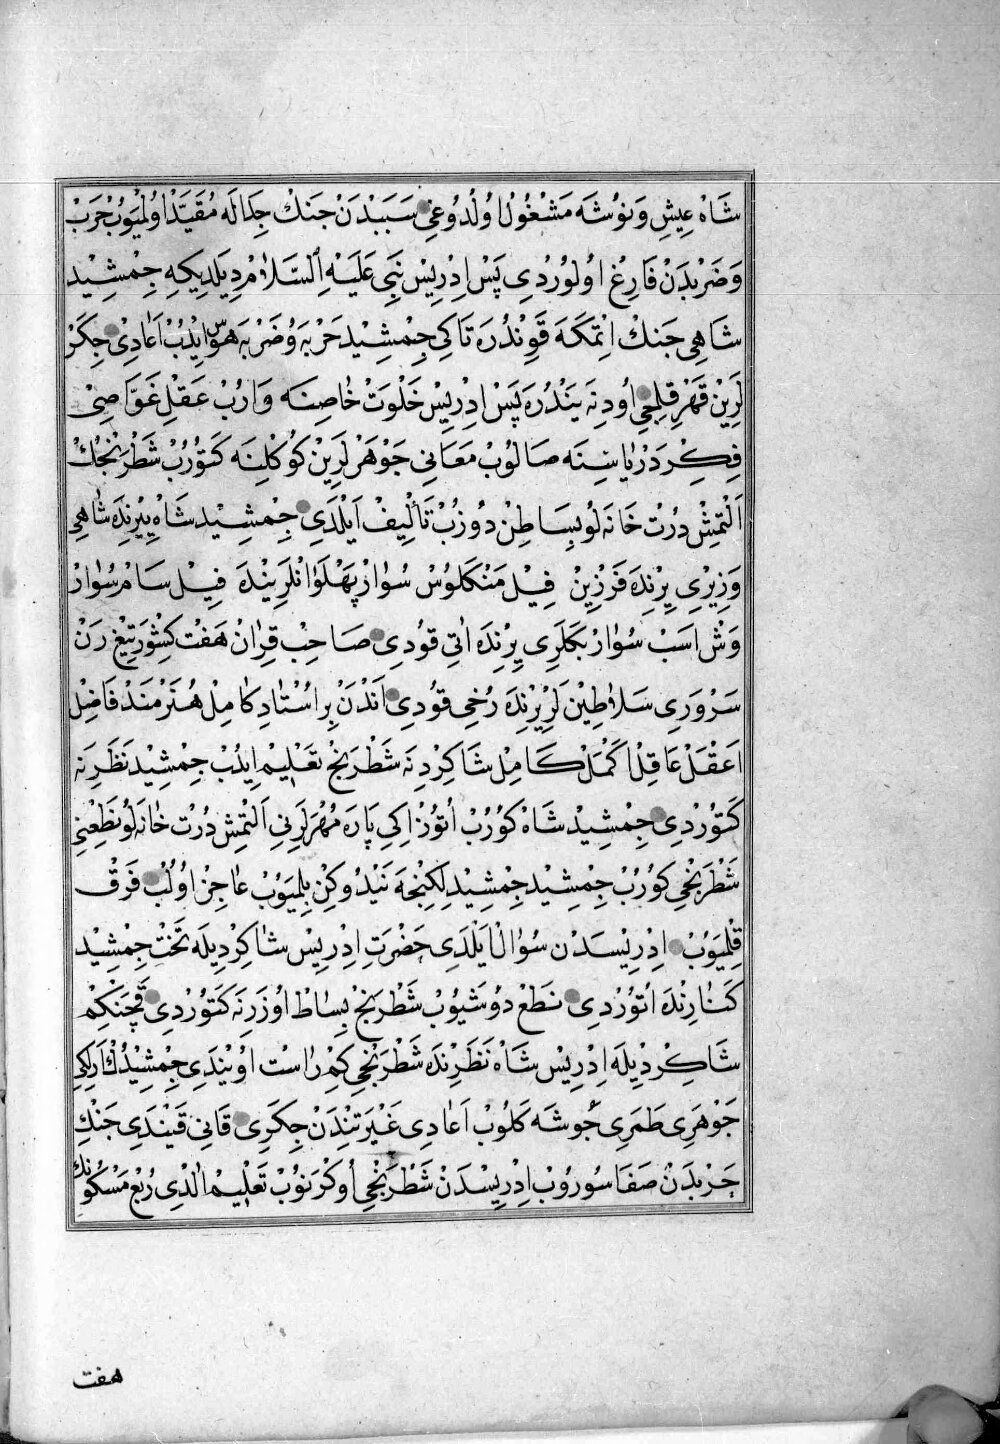 شَاهْ عِيشِ وَنُوشَه مَشْغُولْ اُولْدُوغِي سَبَبْدَنْ جَنكْ جِدَالَه مُقَيَّدْ اُولْمَيُوبْ حَرْبْ
وَضَرْبْدَنْ فَارِغْ اُولُورْدِي پَسْ اِدْرِيسْ نَبِي عَلَيْهِ اَلسَّلَامْ دِيلَدِيكِه جِمْشِيدْ
شَاهِي جَنكْ اِتْمَكَه قَوِنْدُرَه تَاكِي جِمْشِيدْ حَرْبَه وُضَرْبَه هَوَسْ اِيدُبْ اَعَادِيْ جِكَرْ
لَرِينْ قَهْرِ قِلِيجِي اُودِنَه يَنْدُرَه پَسْ اِدْرِيسْ خَلْوَتْ خَاصِنَه وَارُبْ عَقْلِ غَوَّاصِينْ
فِكِرْ دَرْيَاسِنَه صَالُوبْ مَعَانِي جَوْهَرْلَرِينْ كُوكْلِنَه كَتُورُبْ شَطْرَنْجُكْ
اَلْتْمِشْ دُرْتْ خَانَه لُو بِسَاطِنْ دُوزُبْ تَأْلِيفْ اَيْلَدِي جِمْشِيدْ شَاهْ يِيرِنْدَه شَاهِي
وَزِيرِي يِرِنْدَه فَرْزِينْ فِيلْ مَنْكَلُوسْ سُوَارْ پَهْلَوَانْلَرِينْدَه فِيلْ سَامْ سُوَارْ
وَشْ اَسَبْ سُوَارْ بَكْلَرِي يِرِنْدَه اَتِي قُودِي صَاحِبْ قِرَانْ هَفْتْ كِشْوَرْ تِيغْ زَنْ
سَرْوَرِي سَلَاطِينْ لَرْ يِرِنْدَه رُخِي قُودِي اَنْدَنْ بِرْ اُسْتَادِ كَامِلْ هُنَرْمَنْدْ فَاضِلْ
اَعْقَلْ عَاقِلْ اَكْمَلْ كَامِلْ شَاكِرْدِنَه شَطْرَنْجْ تَعْلِيمْ اِيدُبْ جِمْشِيدْ نَظَرِنَه
كَتُورْدِي جِمْشِيدْ شَاهْ كُورُبْ اُتُوزْ اِكِي پَارَه مُهْرَلَرِنِي اَلْتْمِشْ دُرْتْ خَانَه لُو نَطْعِنِي
شَطْرَنْجِي كُورُبْ جِمْشِيدْ جِمْشِيدْلِكِنْجَه نَيْدُوكِنْ بِلْمَيُوبْ عَاجِزْ اُولُبْ فَرْقْ
قِلْمَيُوبْ اِدْرِيسْدَنْ سُوَالْ اَيْلَدِي حَضْرَتِ اِدْرِيسْ شَاكِرْدِيلَه تَخْتِ جِمْشِيدْ
كَنَارِنْدَه اُتُورْدِي نَطَعْ دُوشَيُوبْ شَطْرَنْجْ بِسَاطْ اُوزَرِنَه كَتُورْدِي قَچَنْكِمْ
شَاكِرْدِيلَه اِدْرِيسْ شَاهْ نَظَرِنْدَه شَطْرَنْجِي كِمْ رَاسْتْ اُوينَدِي جِمْشِيدُكْ اَرْلِكِ
جَوْهَرِي طَمَرِي جُوشَه كَلُوبْ اَعَادِي غَيْرَتِنْدَنْ جِكَرِي قَانِي قَيْنَدِي جَنْكِ
حَرْبْدَنْ صَفَا سُورُوبْ اِدْرِيسْدَنْ شَطْرَنْجِي اُوكْرَنُوبْ تَعْلِيمْ اَلْدِي رُبْعِ مَسْكُونِكْ
هفت